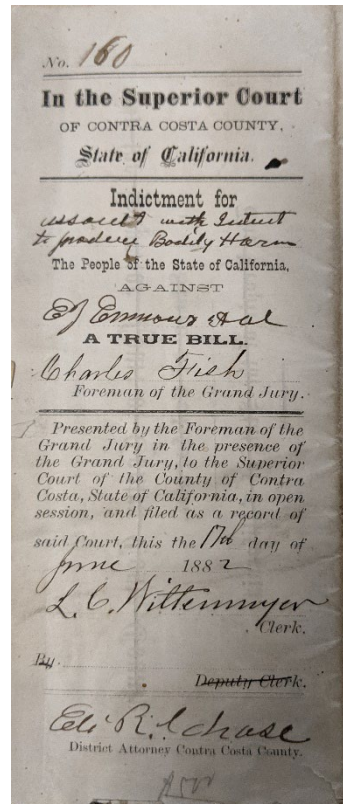 No. 160
In the Superior Court
OF CONTRA COSTA COUNTY,
State of California.
Indictment for
assault with Intent
to produce Bodily Harm
The People of the State of California,
AGAINST
EJ Emmons et al
A TRUE BILL.
Charles Fish
Foreman of the Grand Jury.
Presented by the Foreman of the
Grand Jury in the presence of
the Grand Jury, to the Superior
Court of the County of Contra
Costa, State of California, in open
session, and filed as a record of
said Court, this the 17th day of
June 1882
L. C. Wittenmyer
Clerk.
By.
Deputy Clerk.
Eli R. Chase
District Attorney Contra Costa County.